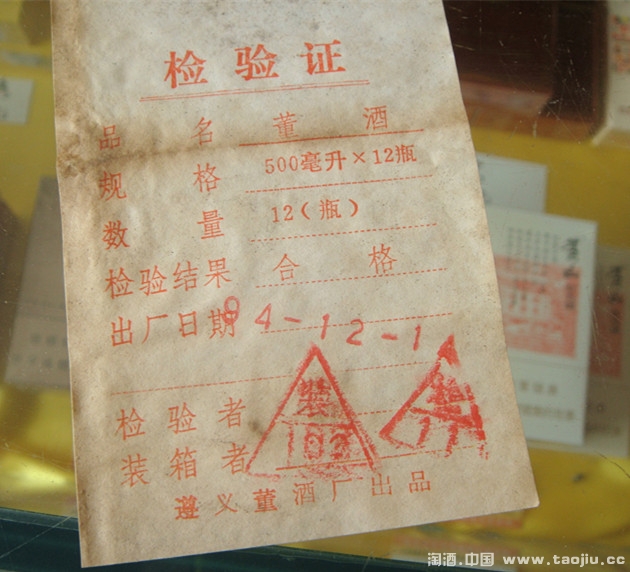 检验证
品名 董酒
规格 500毫升×12瓶
数量 12(瓶)
检验结果 合格
出厂日期 94-12-1
检验者
装箱者
装
103
遵义董酒厂出品
淘酒.中国 www.taojiu.cc